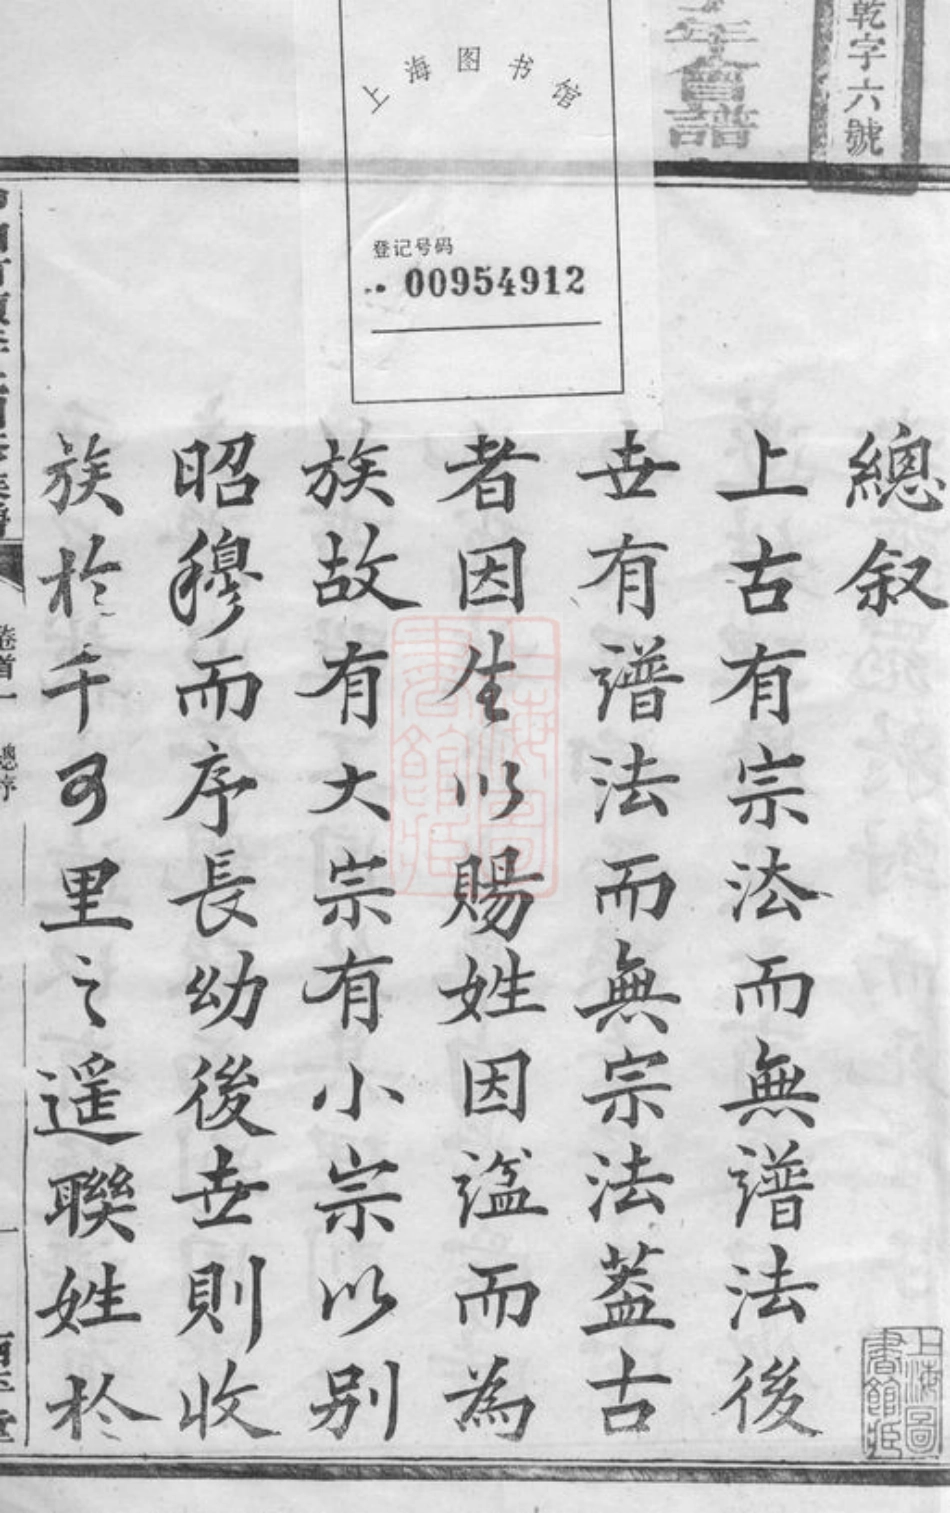 乾字六號
年會譜
上海图书馆
登记号码
00954912
總叙
上古有宗法而無譜法後
世有譜法而無宗法蓋古
者因生以賜姓因謚而為
族故有大宗有小宗以别
昭穆而序長幼後世則收
族於千百里之遥聯姓於
卷首一
總序
上海圖書館藏
上海圖書館藏